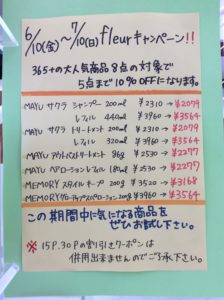 6/10(金)〜7/10(日)fleurキャンペーン!!
365+の大人気商品8点の対象で
5点まで10%OFFになります。
MAYU サクラ シャンプー 200ml ¥2310→¥2079
レフィル 440ml ¥3960→¥3564
MAYU サクラ トリートメント 200ml ¥2310→¥2079
レフィル 320ml ¥3960→¥3564
MAYU アウトバストリートメント 96g ¥2530→¥2277
MAYU ペアローションレフィル 180ml ¥2530→¥2277
MEMORY スタイルキープ 200g ¥3520→¥3168
MEMORY グローティアスペアローション 200g ¥3960→¥3564
この期間中に気になる商品を
ぜひお試し下さい。
※15P.30Pの割引きクーポンは
併用出来ませんのでご了承下さい。